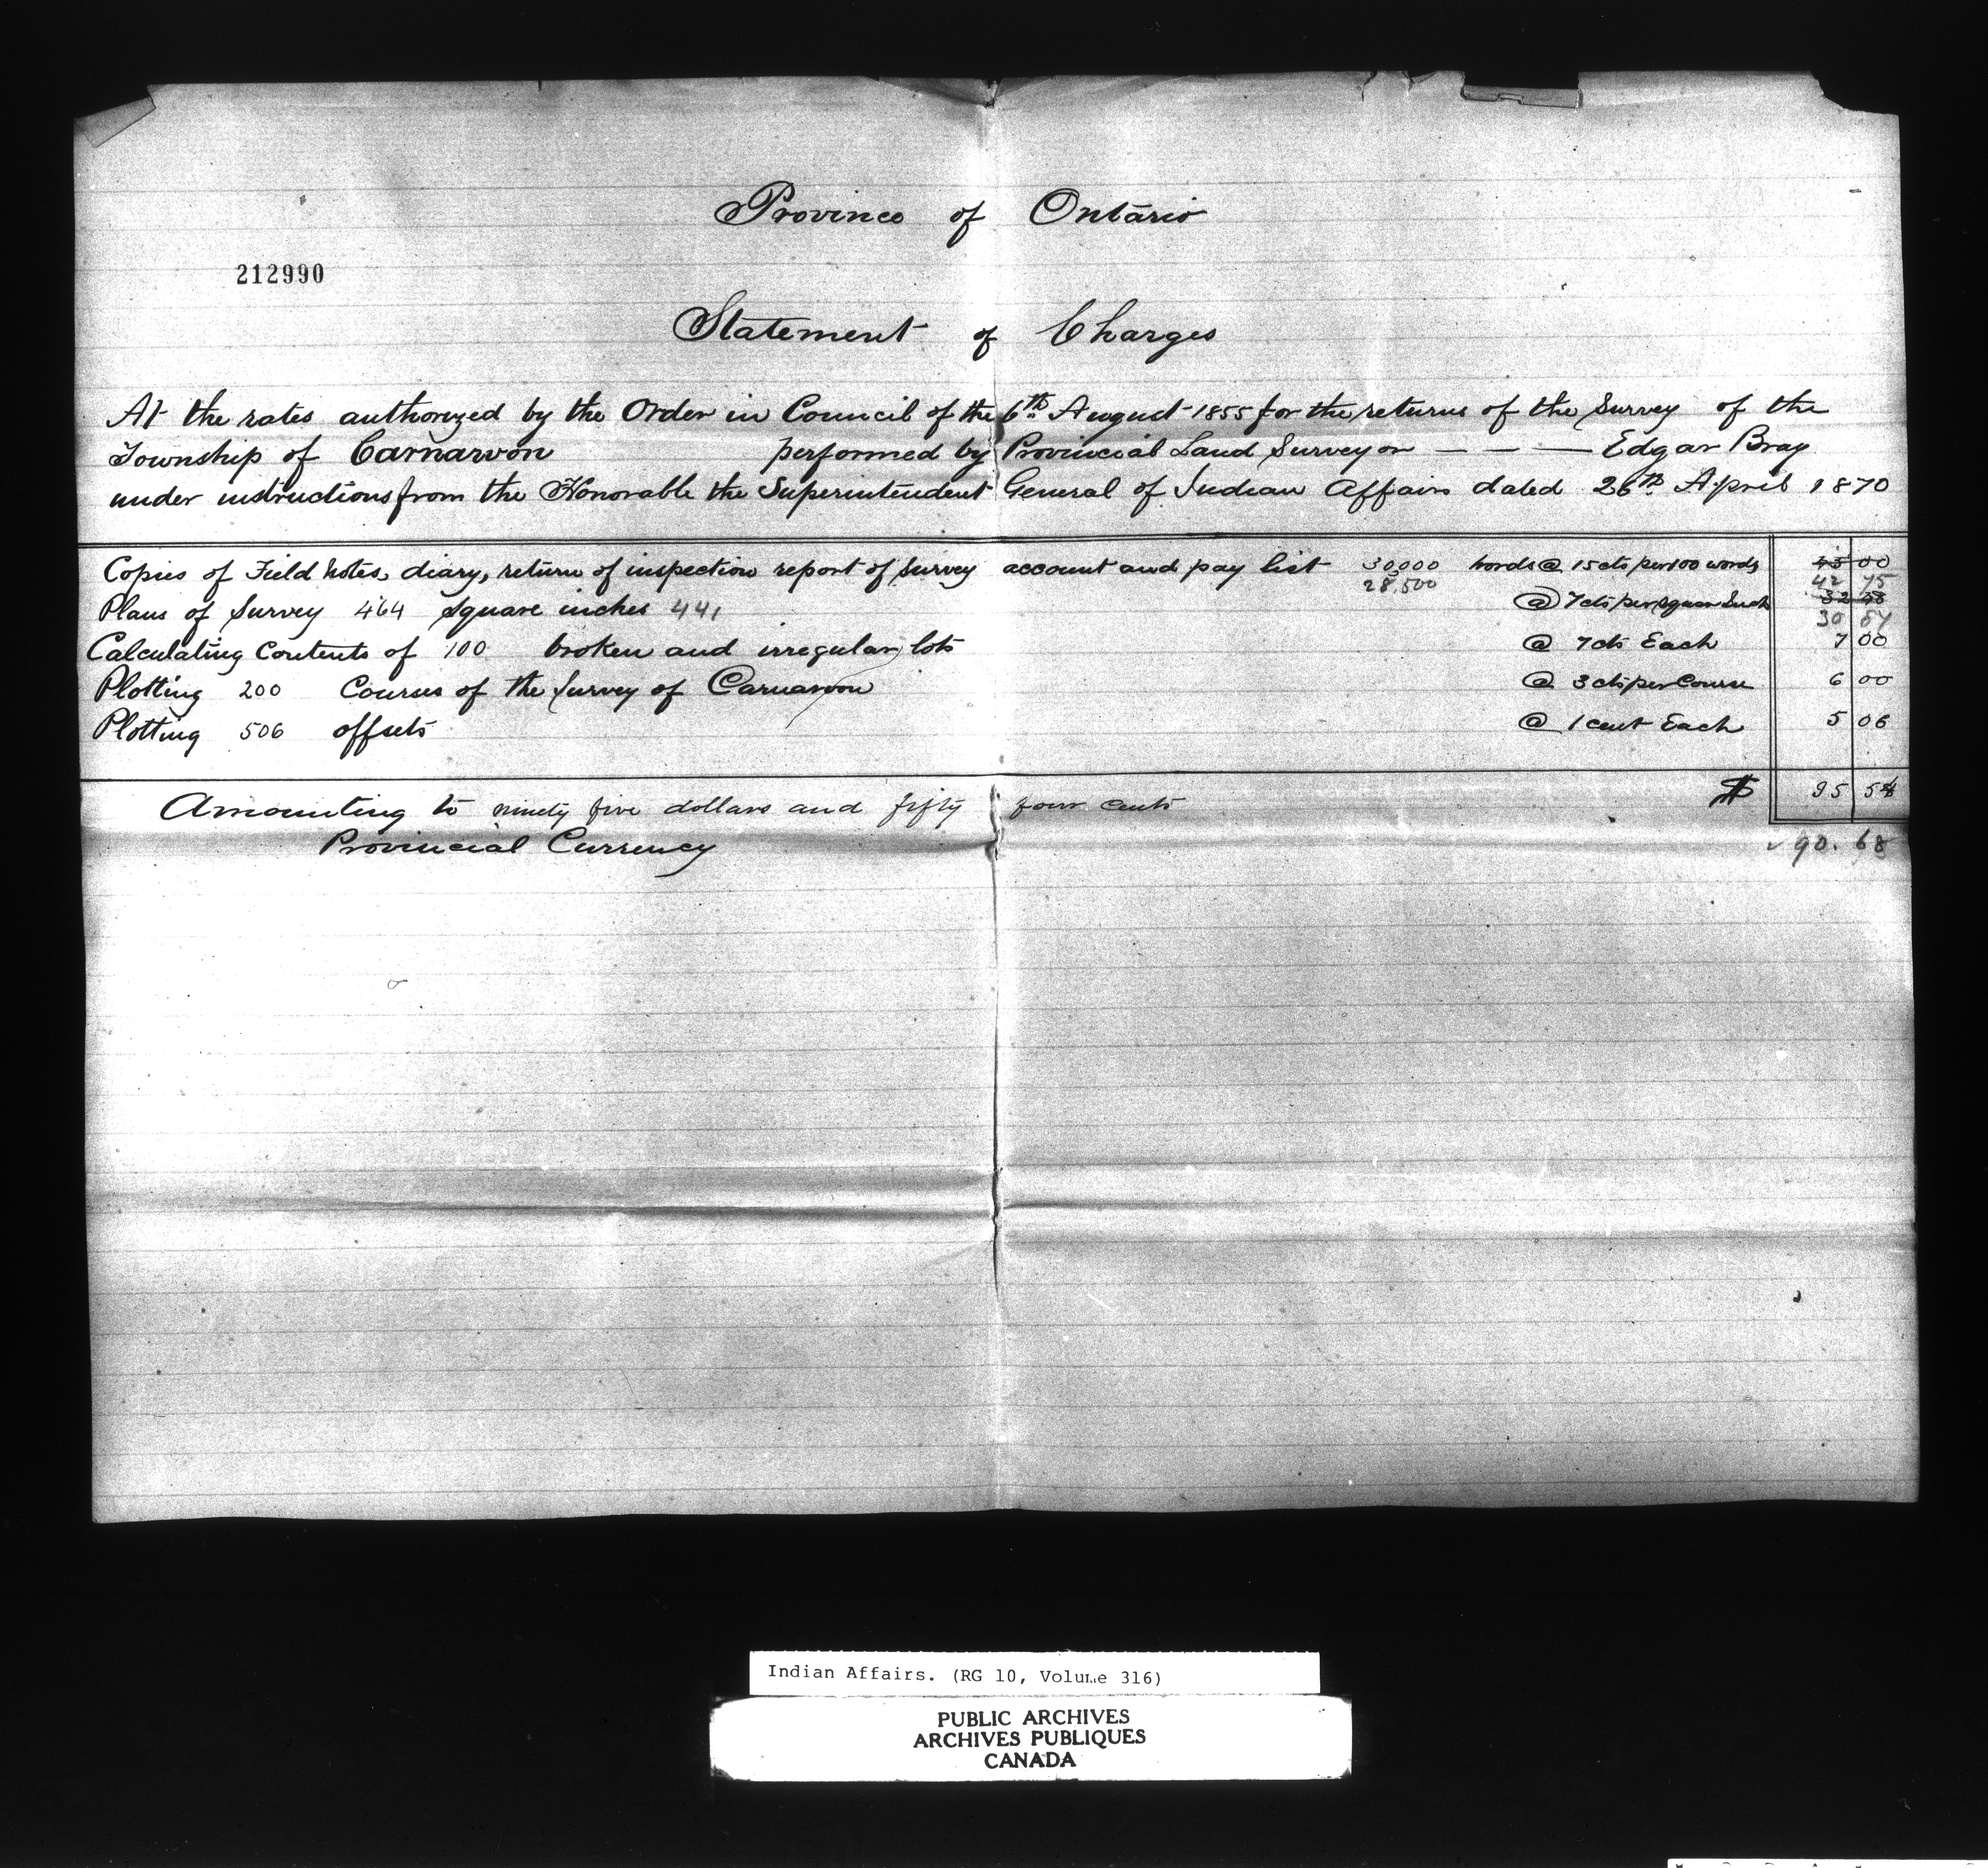 Province of Ontario
212990
Statement of Charges
At the rates authorized by the Order in Council of the 6th August 1855 for the returns of the Survey of the
Township of Carnarvon performed by Provincial Land Surveyor — — — Edgar Bray
under instructions from the Honorable the Superintendent General of Indian Affairs dated 26th April 1870
Copies of Field Notes, diary, return of inspection report of Survey account and pay list 30,000 words @ 15 cts per 100 words 45 00
28,500 42 75
Plans of Survey 464 square inches 441 @ 7 cts per square Inch 32 48
30 87
Calculating Contents of 100 broken and irregular lots @ 7 cts Each 7 00
Plotting 200 Courses of the Survey of Carnarvon @ 3 cts per Course 6 00
Plotting 506 offsets @ 1 cent Each 5 06
Amounting to ninety five dollars and fifty four cents $ 95 54
Provincial Currency 90.68
Indian Affairs. (RG 10, Volume 316)
PUBLIC ARCHIVES
ARCHIVES PUBLIQUES
CANADA